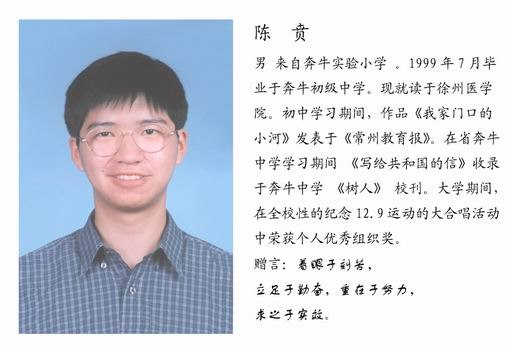 陈 贲
男 来自奔牛实验小学 。1999 年 7 月毕
业于奔牛初级中学。现就读于徐州医学
院。初中学习期间，作品《我家门口的
小河》发表于《常州教育报》。在省奔牛
中学学习期间 《写给共和国的信》收录
于奔牛中学 《树人》 校刊。大学期间，
在全校性的纪念 12.9 运动的大合唱活动
中荣获个人优秀组织奖。
赠言：着眼于刻苦，
立足于勤奋，重在于努力，
求之于实效。